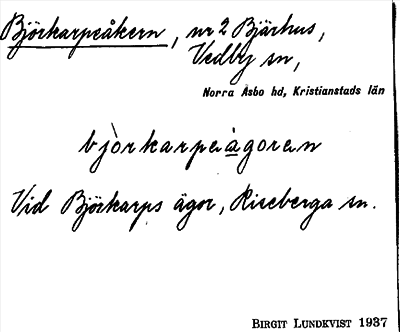 Björkarpeåkern, nr 2 Bjärhus,
Vedby sn,
Norra Åsbo hd, Kristianstads län
bjò̀rkarpaàgoran
Vid Björkarps ägor, Riseberga sn.
BIRGIT LUNDKVIST 1937